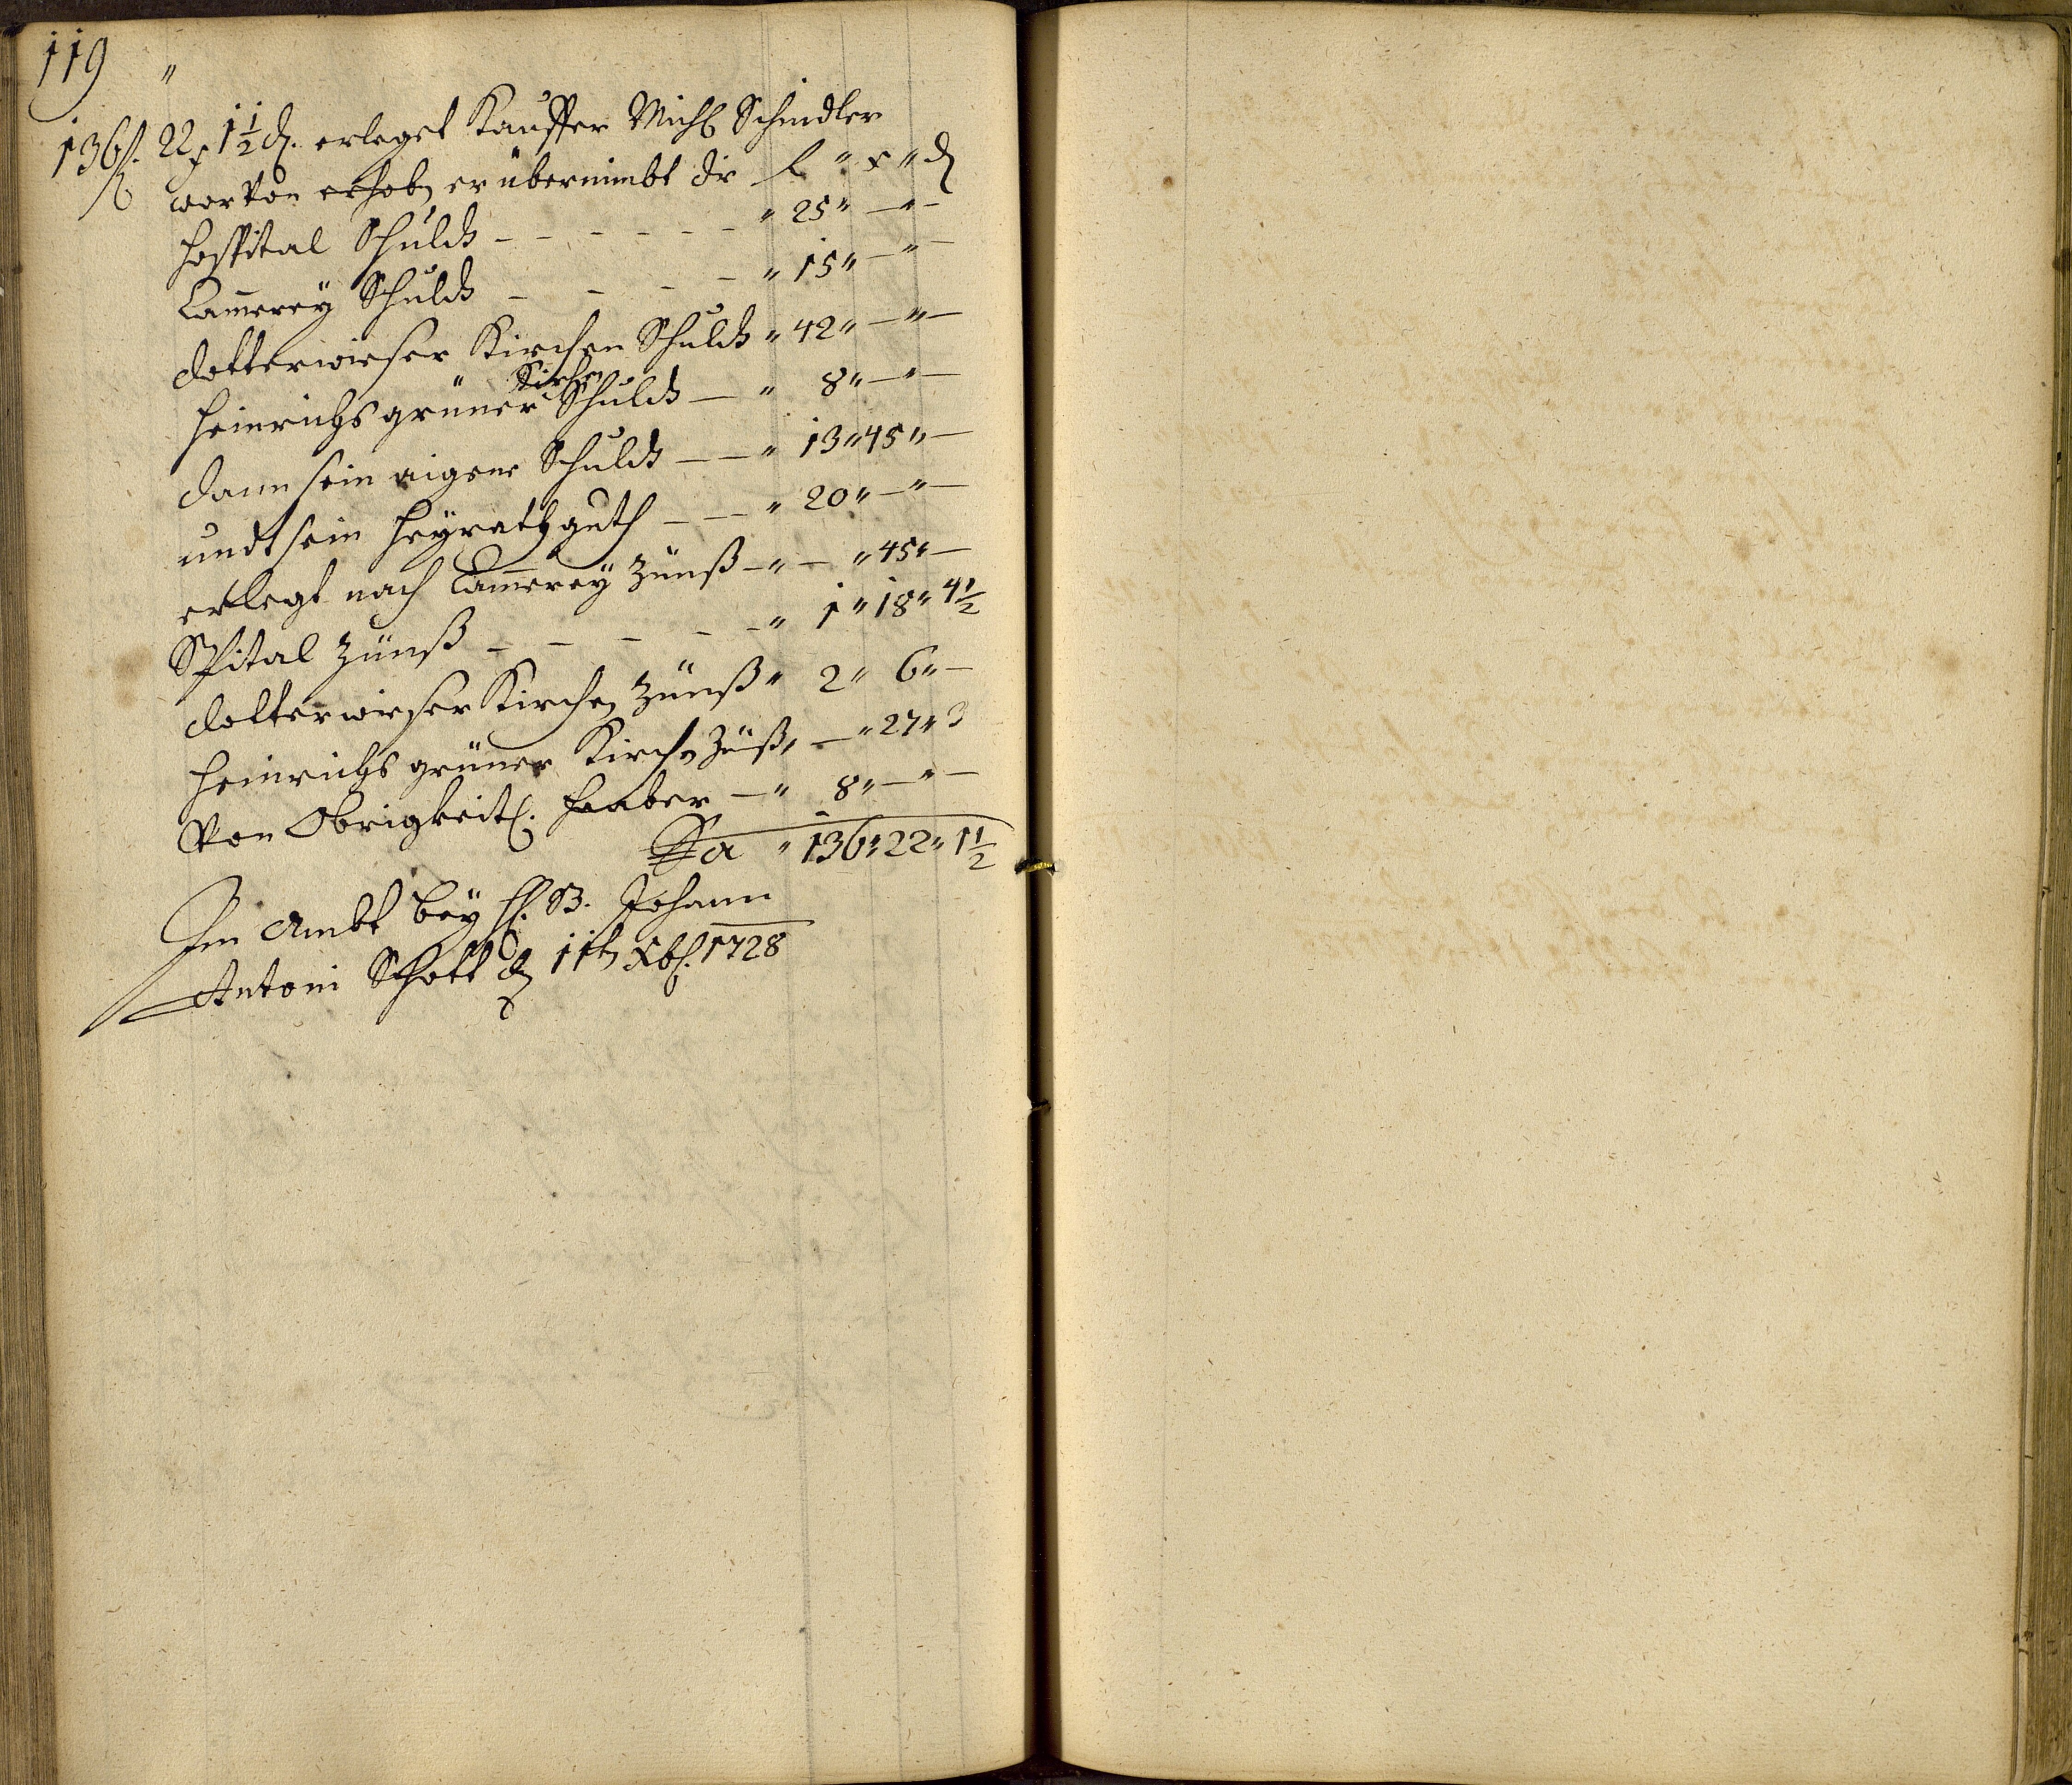 119
136 fl. 22 x 1 1/2 d. erleget Kauffer Michl Schindler
worvon er übernimbt die fl " x " d
Hospital Schuldt - - - - - - " 25 " — " —
Cammerey Schuldt - - - - " 15 " — " —
Dotterwieser Kirchen Schuldt " 42 " — " —
Heinrichs grüner Kirchen Schuldt — " 8 " — " —
dann sein aigene Schuldt — — " 13 " 45 " —
undt sein Heyrathguth — — " 20 " — " —
erlegt nach Cammerey Zünß — " — " 45 " —
Spital Zünß - - - - - " 1 " 18 " 4 1/2
Dotterwieser Kirchen Zünß " 2 " 6 " —
Heinrichs grüner Kirchen Zünß " — " 27 " 3
Von Obrigkeitl. Haaber — " 8 " — " —
Sa " 136 " 22 " 1 1/2
Im Ambt bey H. B. Johann
Antoni Schott den 11ten Xbr. 1728